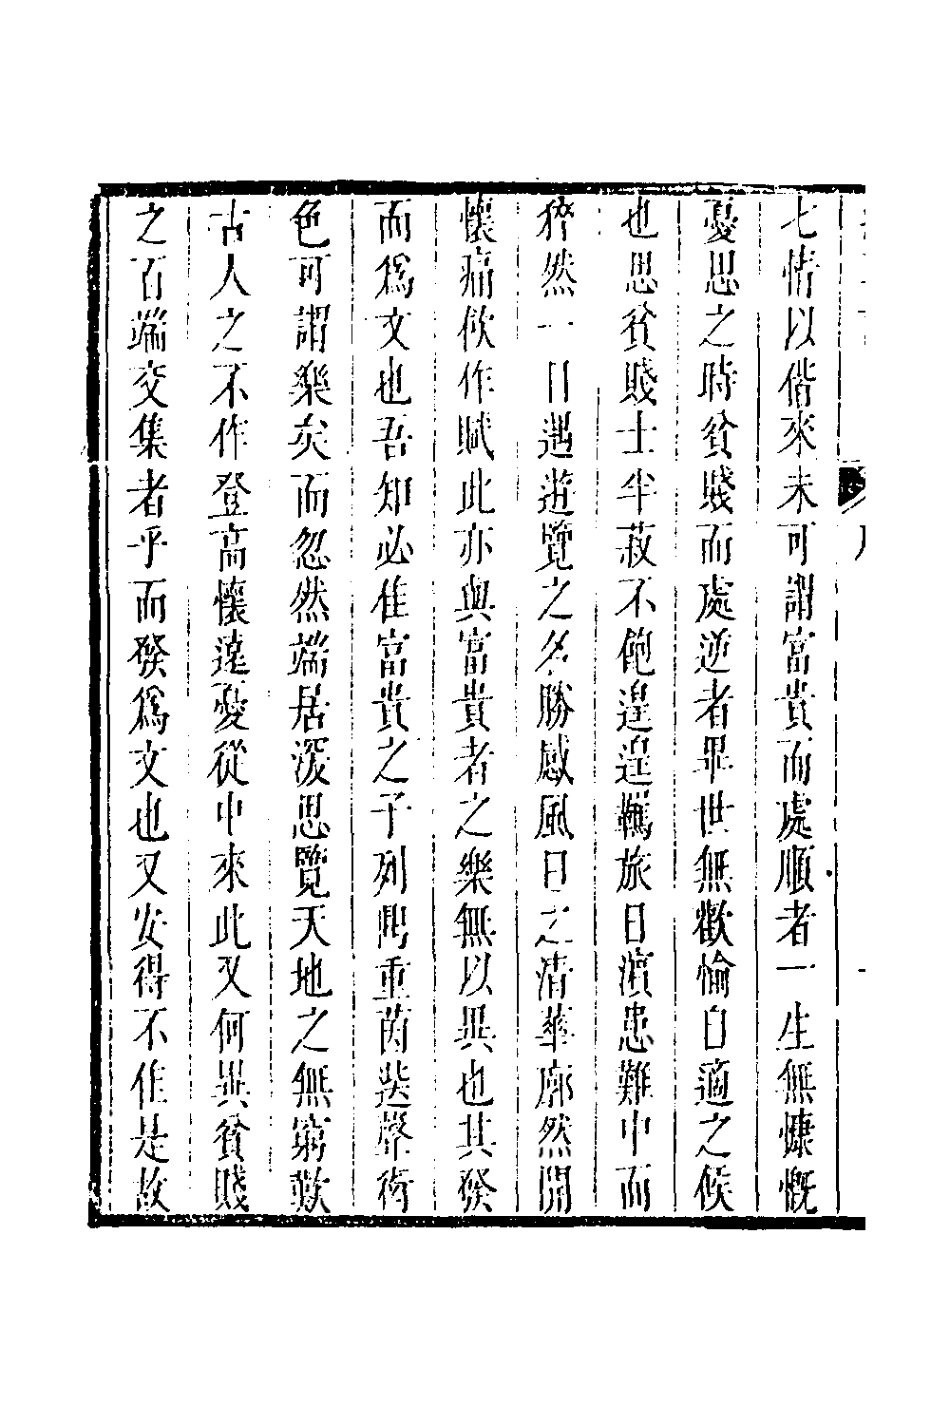 七情以偕來未可謂富貴而處順者一生無慷慨
憂思之時貧賤而處逆者畢世無歡愉自適之候
也思貧賤士半菽不飽遑遑羈旅日濵患難中而
猝然一日遇遊覽之名勝感風日之清華廓然開
懷痛飲作賦此亦與富貴者之樂無以異也其發
而爲文也吾知必佳富貴之子列鼎重茵選聲徵
色可謂樂矣而忽然端居深思覽天地之無窮歎
古人之不作登高懷遠憂從中來此又何異貧賤
之百端交集者乎而發爲文也又安得不佳是故